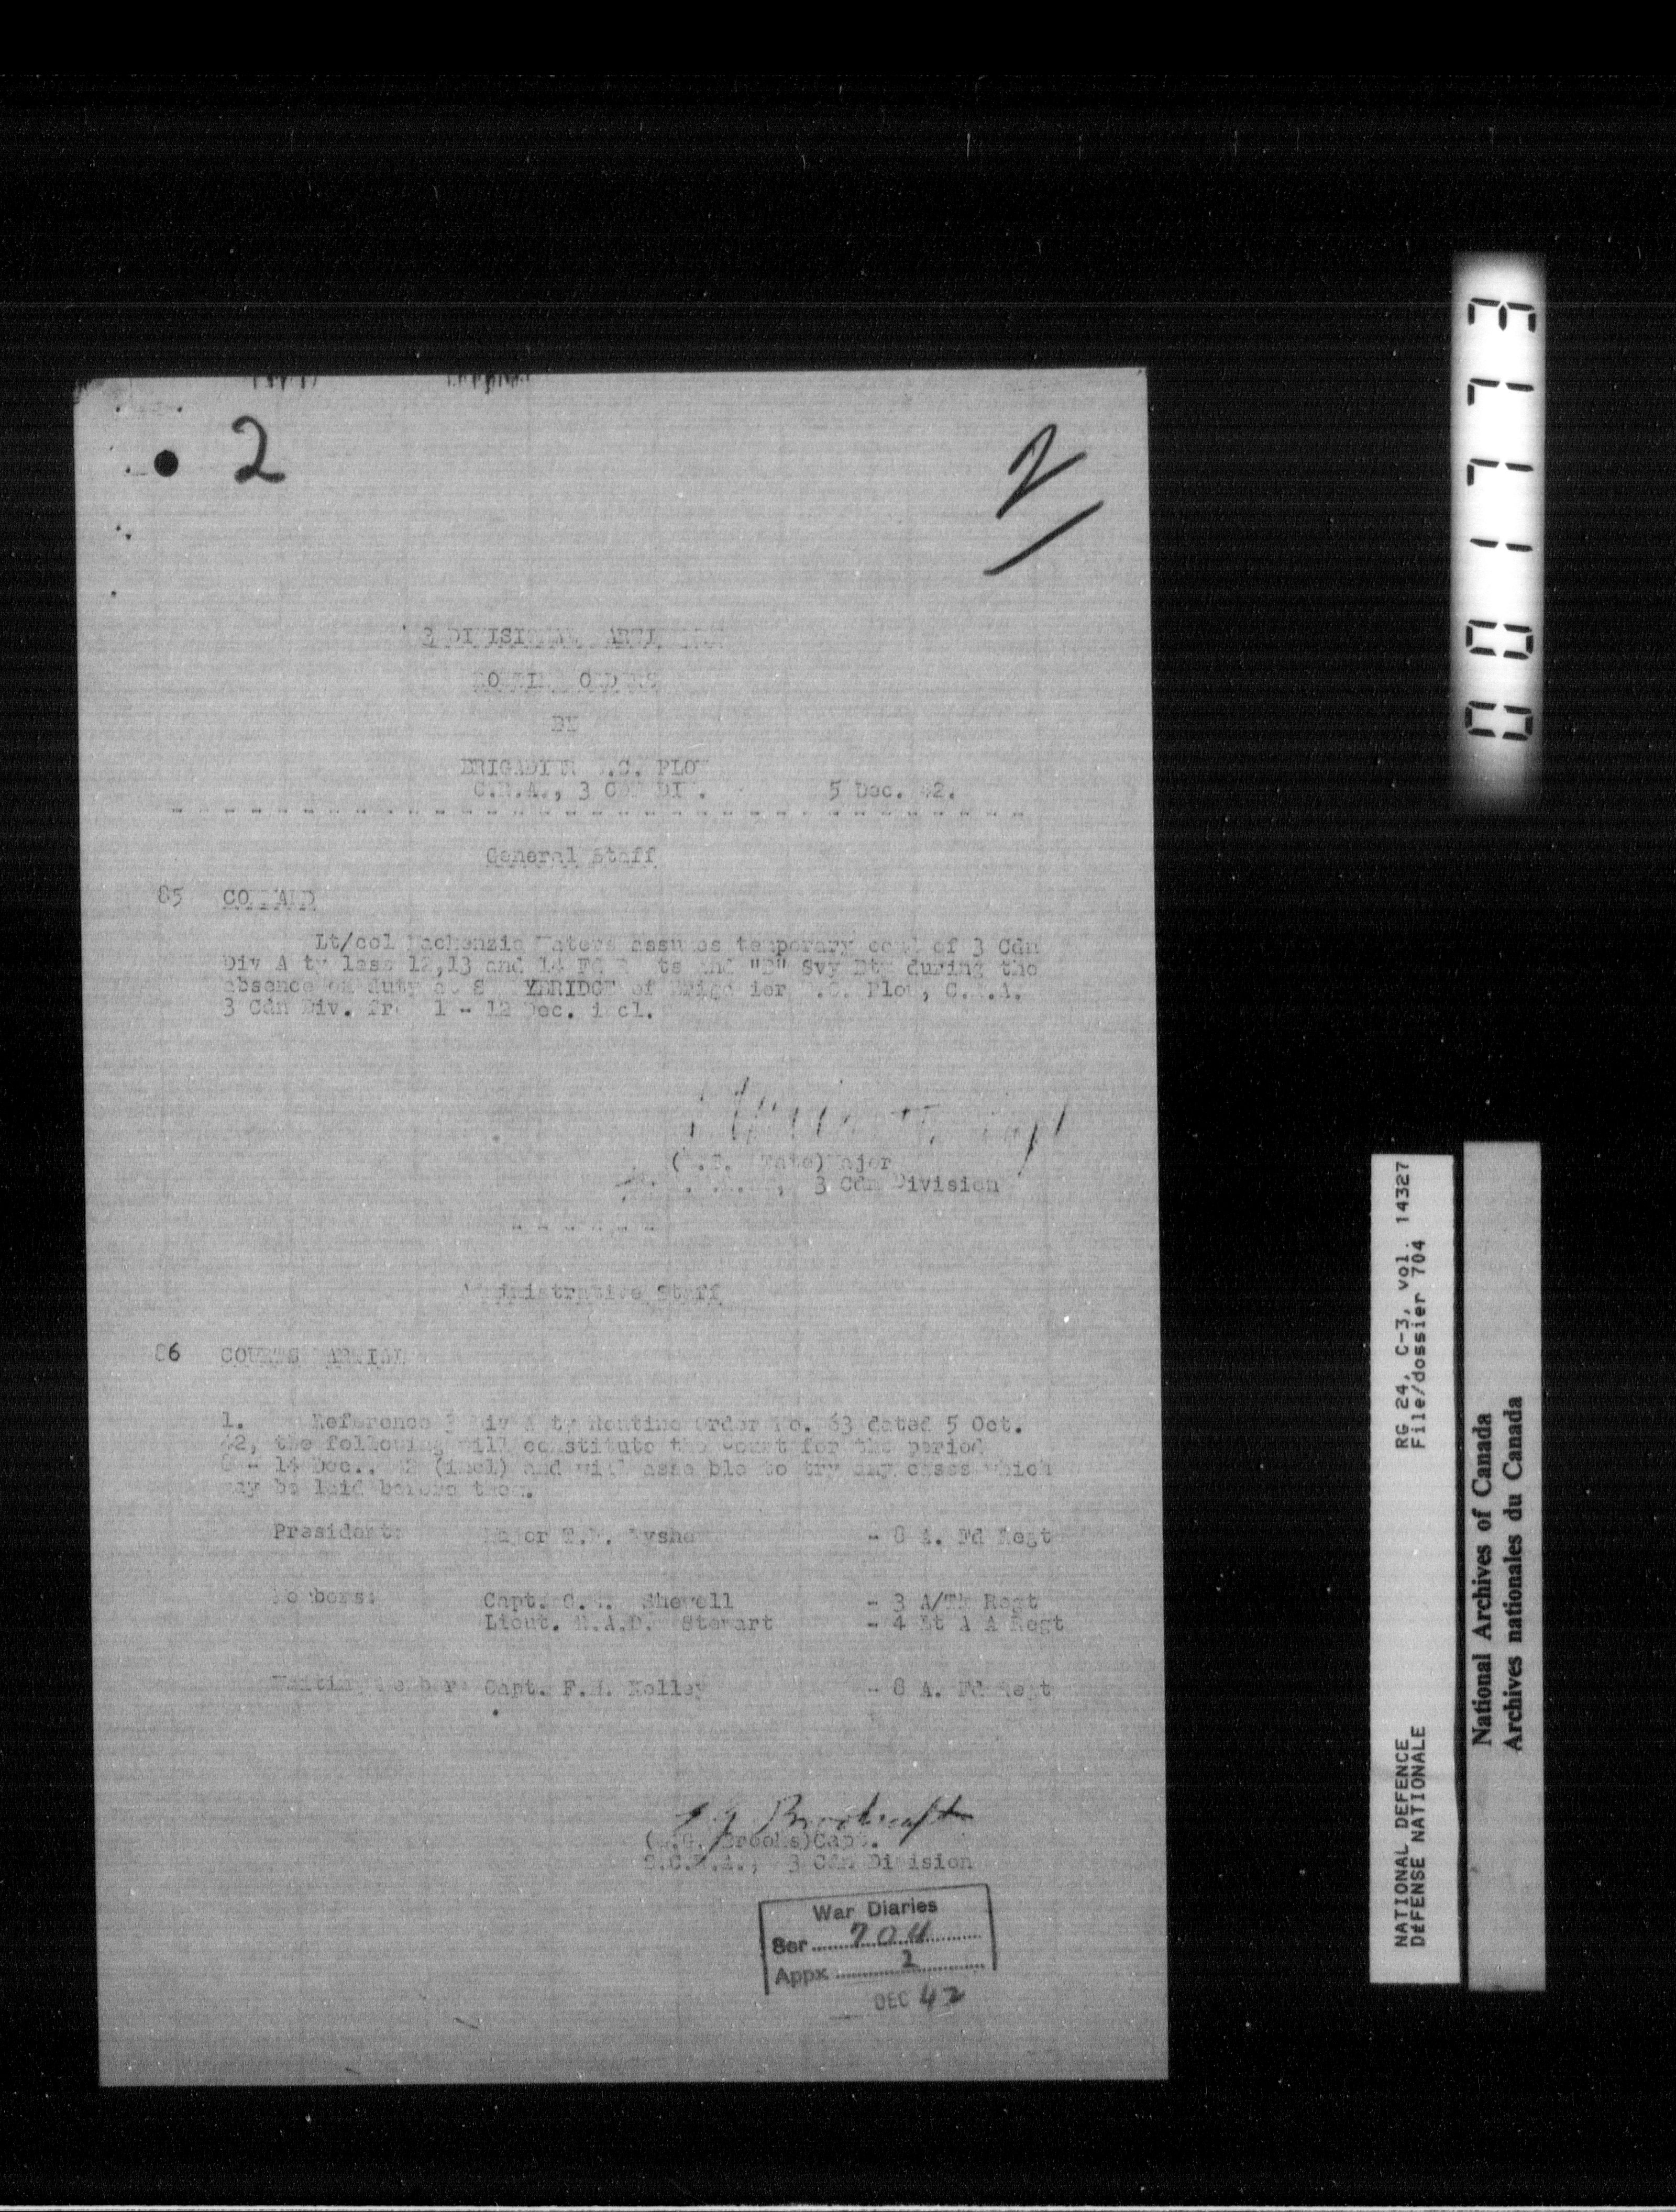 2
2
3 DIVISIONAL ARTILLERY
ROUTINE ORDERS
BY
BRIGADIER P.C. PLOW
C.R.A., 3 CDN DIV. 5 Dec. 42.
General Staff
85 COMMAND
Lt/col Mackenzie Waters assumes temporary comd of 3 Cdn
Div Arty less 12,13 and 14 Fd Regts and "D" Svy Bty during the
absence on duty at YBRIDGE of Brigadier .C. Plow, C.R.A.
3 Cdn Div. from 1 - 12 Dec. incl.
Major
3 Cdn Division
Administrative Staff
86 COURTS MARTIAL
1. Reference 3 Div Arty Routine Order No. 63 dated 5 Oct.
42, the following will constitute the court for the period
8 - 14 Dec.. 42 (incl) and will assemble to try any cases which
may be laid before them.
President: Major - 8 A. Fd Regt
Members: Capt. Shewell - 3 A/Tk Regt
Lieut. Stewart - 4 Lt A A Regt
Waiting Member: Capt. F.H. Kelley - 8 A. Fd Regt
(E.G. Brooks)Capt.
S.C.R.A., 3 Cdn Division
War Diaries
Ser 704
Appx 2
DEC 42
001773
RG 24, C-3, vol. 14327
File/dossier 704
NATIONAL DEFENCE
DéFENSE NATIONALE
National Archives of Canada
Archives nationales du Canada